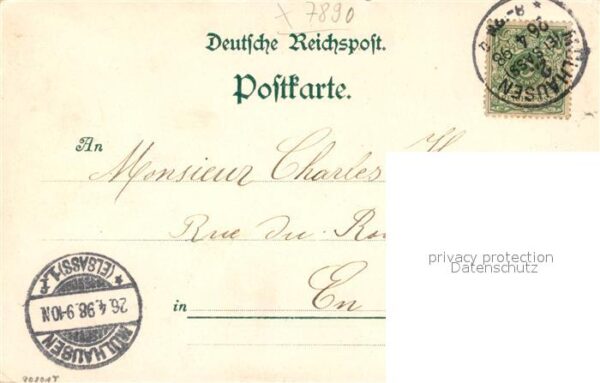 x 7890
Deutsche Reichspost.
Postkarte.
MÜLHAUSEN
(ELSASS)
26.4.98
An Monsieur Charles
Rue du
privacy protection
Datenschutz
MÜLHAUSEN
26.4.98.9-10N
*(ELSASS).1.f.
in En